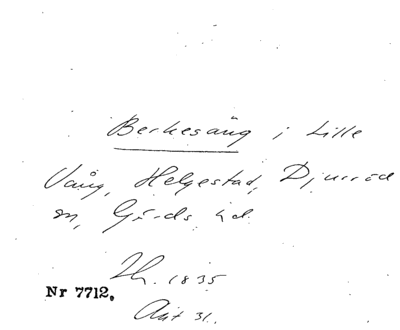 Berkesäng i Lille
Vång, Helgestad, Djurröd
sn, Gärds hd.
Th. 1835
Nr 7712.
Akt 31.